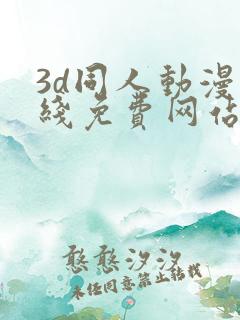 3d同人動漫
綫免費网佔
憨憨汐汐
未经同意禁止转载